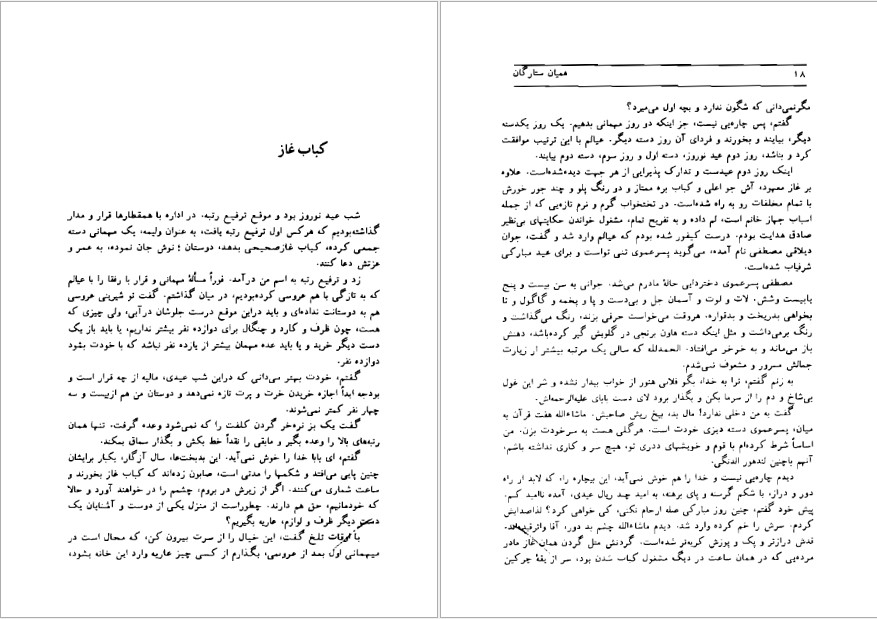 کباب غاز
شب عید نوروز بود و موقع ترفیع رتبه. در اداره با همقطارها قرار و مدار
گذاشته‌بودیم که هرکس اول ترفیع رتبه یافت، به عنوان ولیمه، یک مهمانی دسته
جمعی کرده، کباب غازصحیحی بدهد، دوستان ؛ نوش جان نموده، به عمر و
عزتش دعا کنند.
زد و ترفیع رتبه به اسم من درآمد. فوراً مسألهٔ مهمانی و قرار با رفقا را با عیالم
که به تازگی با هم عروسی کرده‌بودیم، در میان گذاشتم. گفت تو شیرینی عروسی
هم به دوستانت نداده‌ای و باید دراین موقع درست جلوشان درآیی، ولی چیزی که
هست، چون ظرف و کارد و چنگال برای دوازده نفر بیشتر نداریم، یا باید باز یک
دست دیگر خرید و یا باید عده مهمان بیشتر از یازده نفر نباشد که با خودت بشود
دوازده نفر.
گفتم، خودت بهتر می‌دانی که دراین شب عیدی، مالیه از چه قرار است و
بودجه ابداً اجازه خریدن خرت و پرت تازه نمی‌دهد و دوستان من هم ازبیست و سه
چهار نفر کمتر نمی‌شوند.
گفت یک بز نره‌خر گردن کلفت را که نمی‌شود وعده گرفت، تنها همان
رتبه‌های بالا را وعده بگیر و مابقی را نقداً خط بکش و بگذار سماق بمکند.
گفتم، ای بابا خدا را خوش نمی‌آید. این بدبخت‌ها، سال آزگار، یکبار برایشان
چنین پایی می‌افتد و شکمها را مدتی است، صابون زده‌اند که کباب غاز بخورند و
ساعت شماری می‌کنند. اگر از زیرش در بروم، چشمم را در خواهند آورد و حالا
که خودمانیم، حق هم دارند. چطوراست از منزل یکی از دوست و آشنایان یک
دست دیگر ظرف و لوازم، عاریه بگیریم؟
با اوقات تلخ گفت، این خیال را از سرت بیرون کن، که محال است در
میهمانی اول بعد از عروسی، بگذارم از کسی چیز عاریه وارد این خانه بشود،
۱۸ همیان ستارگان
مگرنمی‌دانی که شگون ندارد و بچه اول می‌میرد؟
گفتم، پس چاره‌یی نیست، جز اینکه دو روز مهمانی بدهیم. یک روز یکدسته
دیگر، بیایند و بخورند و فردای آن روز دسته دیگر. عیالم با این ترتیب موافقت
کرد و بناشد، روز دوم عید نوروز، دسته اول و روز سوم، دسته دوم بیایند.
اینک روز دوم عیدست و تدارک پذیرایی از هر جهت دیده‌شده‌است. علاوه
بر غاز معهود، آش جو اعلی و کباب بره ممتاز و دو رنگ پلو و چند جور خورش
با تمام مخلفات رو به راه شده‌است. در تختخواب گرم و نرم تازه‌یی که از جمله
اسباب جهاز خانم است، لم داده و به تفریح تمام، مشغول خواندن حکایتهای بی‌نظیر
صادق هدایت بودم. درست کیفور شده بودم که عیالم وارد شد و گفت، جوان
دیلاقی مصطفی نام آمده، می‌گوید پسرعموی تنی تواست و برای عید مبارکی
شرفیاب شده‌است.
مصطفی پسرعموی دختردایی خالهٔ مادرم می‌شد. جوانی به سن بیست و پنج
یابیست وشش. لات و لوت و آسمان جل و بی‌دست و پا و پخمه و گاگول و تا
بخواهی بدریخت و بدقواره. هروقت می‌خواست حرفی بزند، رنگ می‌گذاشت و
رنگ برمی‌داشت و مثل اینکه دسته هاون برنجی در گلویش گیر کرده‌باشد، دهنش
باز می‌ماند و به خرخر می‌افتاد. الحمدلله که سالی یک مرتبه بیشتر از زیارت
جمالش مسرور و مشعوف نمی‌شدم.
به زنم گفتم، ترا به خدا، بگو فلانی هنوز از خواب بیدار نشده و شر این غول
بی‌شاخ و دم را از سرما بکن و بگذار برود لای دست بابای علیه‌الرحمه‌اش.
گفت به من دخلی ندارد! مال بد، بیخ ریش صاحبش. ماشاءالله هفت قرآن به
میان، پسرعموی دسته دیزی خودت است. هرگلی هست به سرخودت بزن. من
اساساً شرط کرده‌ام با قوم و خویشهای ددری تو، هیچ سر و کاری نداشته باشم،
آنهم باچنین لندهور الدنگی.
دیدم چاره‌یی نیست و خدا را هم خوش نمی‌آید، این بیچاره را، که لابد از راه
دور و دراز، با شکم گرسنه و پای برهنه، به امید چند ریال عیدی، آمده ناامید کنم.
پیش خود گفتم، چنین روز مبارکی صله ارحام نکنی، کی خواهی کرد؟ لذاصدایش
کردم. سرش را خم کرده وارد شد. دیدم ماشاءالله چشم بد دور، آقا واترقیده‌اند.
قدش درازتر و پک و پوزش کریه‌تر شده‌است. گردنش مثل گردن همان غاز مادر
مرده‌یی که در همان ساعت در دیگ مشغول کباب شدن بود، سر از یقهٔ چرکین